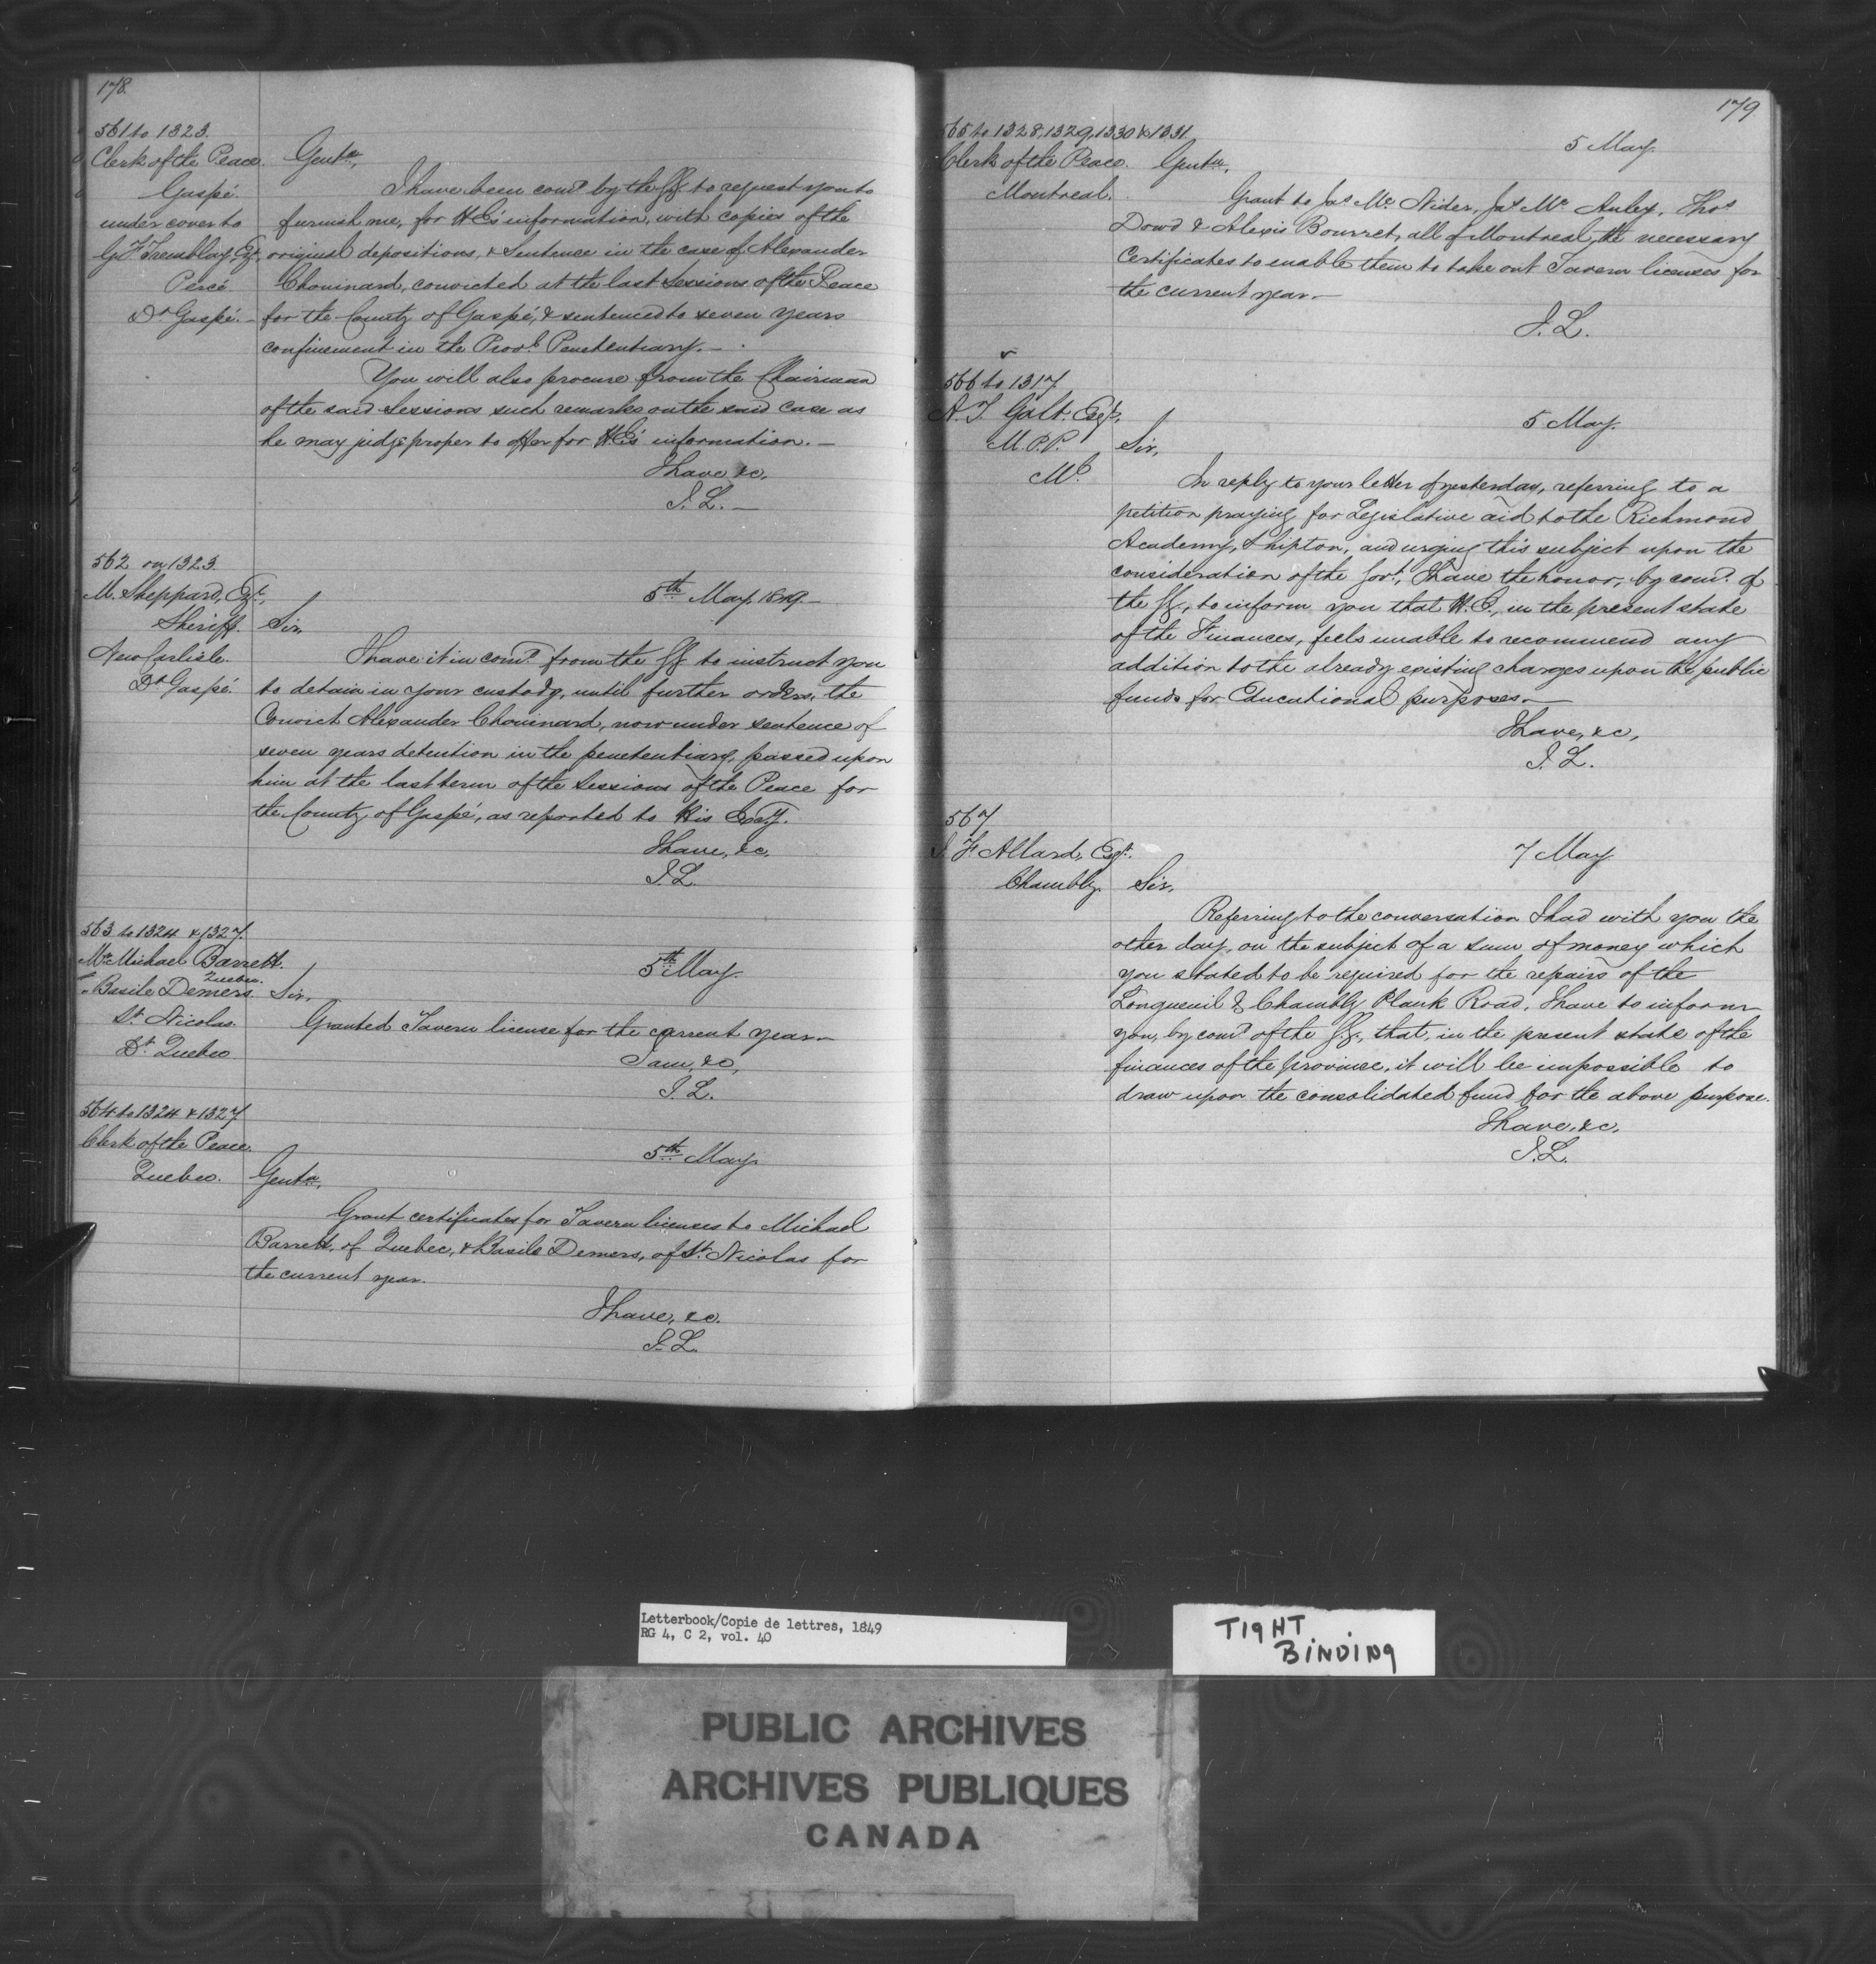 178.
561 to 1323.
Clerk of the Peace.
Gaspé.
under cover to
G F Tremblay, Esq.
Percé
Dt Gaspé.
Gentn,
I have been comd by the GG to request you to
furnish me, for H E's information, with copies of the
original depositions, & Sentence in the case of Alexander
Chouinard, convicted at the last Sessions of the Peace
for the County of Gaspé, & sentenced to seven years
confinement in the Provl Penetentiary. —
You will also procure from the Chairman
of the said Sessions such remarks on the said case as
he may judge proper to offer for H E's information. —
I have, &c,
J. L. —
562 on 1323.
M. Sheppard, Esqr,
Sheriff.
New Carlisle.
Dt Gaspé.
5th May, 1849. —
Sir,
I have it in comd from the GG to instruct you
to detain in your custody, until further orders, the
Convict Alexander Chouinard, now under sentence of
seven years detention in the penetentiary, passed upon
him at the last term of the Sessions of the Peace for
the County of Gaspé, as reported to His Excy.
I have, &c,
J. L.
563 to 1324 & 1327.
Mr Michael Barrett.
Quebec.
" Basile Demers.
St. Nicolas.
Dt Quebec
5th May.
Sir,
Granted Tavern license for the current year —
I am, &c,
J. L.
564 to 1324 & 1327
Clerk of the Peace.
Quebec.
5th May.
Gentn,
Grant certificates for Tavern licenses to Michael
Barrett, of Quebec, & Basile Demers, of St. Nicolas for
the current year.
I have, &c.
J. L.
179
565 to 1328, 1329, 1330 & 1331.
Clerk of the Peace.
Montreal.
5 May.
Gentn,
Grant to Jas Mc Nider, Jas Mc Auley, Thos
Dowd & Alexis Bourret, all of Montreal, the necessary
Certificates to enable them to take out Tavern licenses for
the current year. —
J. L.
566 to 1317
A. T. Galt. Esqr,
M. P. P.
Ml
5 May.
Sir,
In reply to your letter of yesterday, referring to a
petition praying for Legislative aid to the Richmond
Academy, Shipton, and urging this subject upon the
consideration of the Govt, I have the honor, by comd of
the GG, to inform you that H. E., in the present state
of the Finances, feels unable to recommend any
addition to the already existing charges upon the public
funds for Educational purposes. —
I have, &c,
J. L.
567
F. Allard, Esqr.
Chambly.
7 May.
Sir,
Referring to the conversation I had with you the
other day, on the subject of a sum of money which
you stated to be required for the repairs of the
Longueuil & Chambly Plank Road, I have to inform
you, by comd of the G. G., that, in the present state of the
finances of the province, it will be impossible to
draw upon the consolidated fund for the above purpose.
I have, &c.
J. L.
Letterbook/Copie de lettres, 1849
RG 4, C 2, vol. 40
TIGHT
BINDING
PUBLIC ARCHIVES
ARCHIVES PUBLIQUES
CANADA